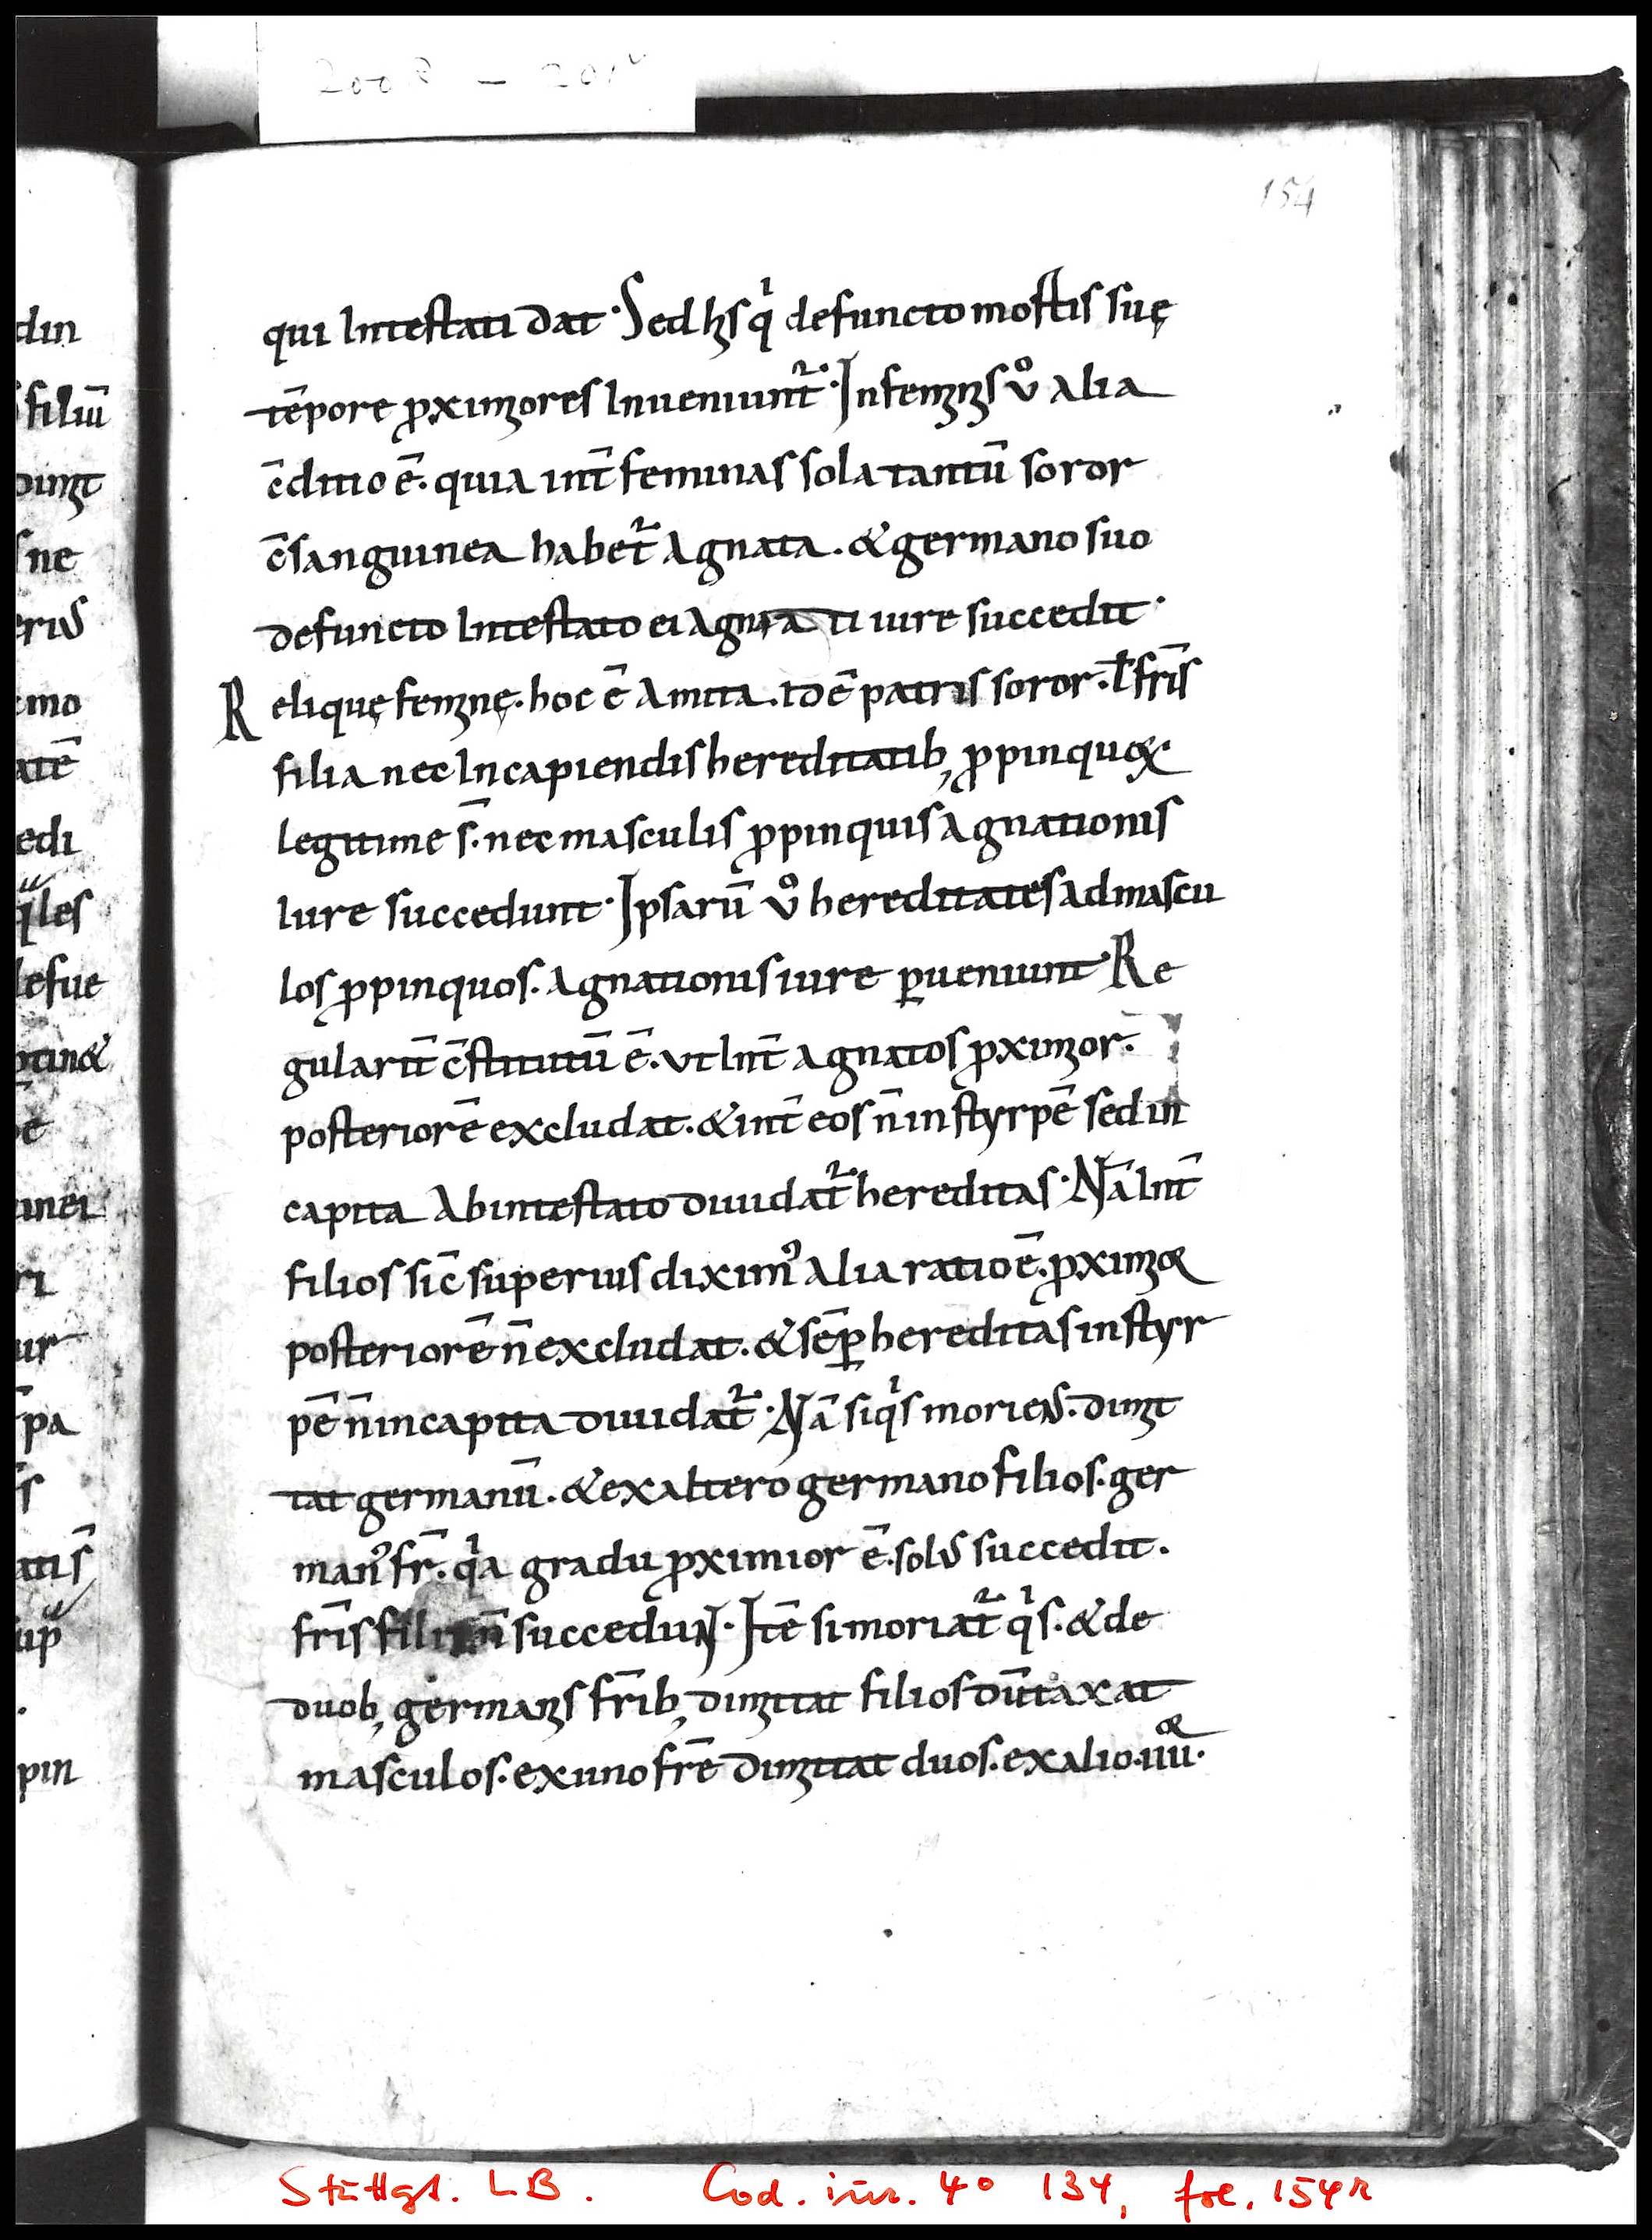 2008 - 201v
154
din
filiū
dimt
ne
erus
mo
atē
edi
qles
lefue
ptin&
ē
inei
ri
ur
pa
s
atis
up
pin
qui Intestati dat. Sed hıs qͥ defuncto mortis suę
tēpore ꝓximores Inueniunt᷑. In femınıs v̊ alia
c̄ditio ē. quia int̄ feminas sola tantū soror
c̄sanguinea habet᷑ Agnata. & germano suo
defuncto Intestato ei Agnati iure succedit.
Relique̜ femine̜. hoc ē Amita. id ē patris soror. ł fr̄is
filia nec In capiendis hereditatib; ꝓpinquoꝝ
legitime s̄. nec masculis ꝓpinquis Agnationis
Iure succedunt. Ipsarū v̊ hereditates Ad mascu
los ꝓpinquos. Agnationis iure ꝑueniunt. Re
gularit̄ c̄stitutū ē. ut Int̄ agnatos ꝓximor.
posteriorē excludat. & int̄ eos n̄ in styrpē sed in
capita Ab intestato diuidat᷑ hereditas. Nā Int̄
filios sic̄ superius diximꝰ alia ratio ē. ꝓximor
posteriorē n̄ excludat. & sēꝑ hereditas in styr
pē n̄ in capita diuidat᷑. Nā siqͥs moriens. dimit
tat germanū. & ex altero germano filios. ger
manꝰ fr̄. qͥa gradu ꝓximior ē. solus succedit.
fr̄is filii n̄ succedunt. Itē si moriat᷑ qͥs. & de
duob; germanis fr̄ib; dimittat filios dūtaxat
masculos. ex uno fr̄e dimittat duos. ex alio. iiii͛.
Stuttgt. LB. Cod. iur. 4° 134, fol. 154r